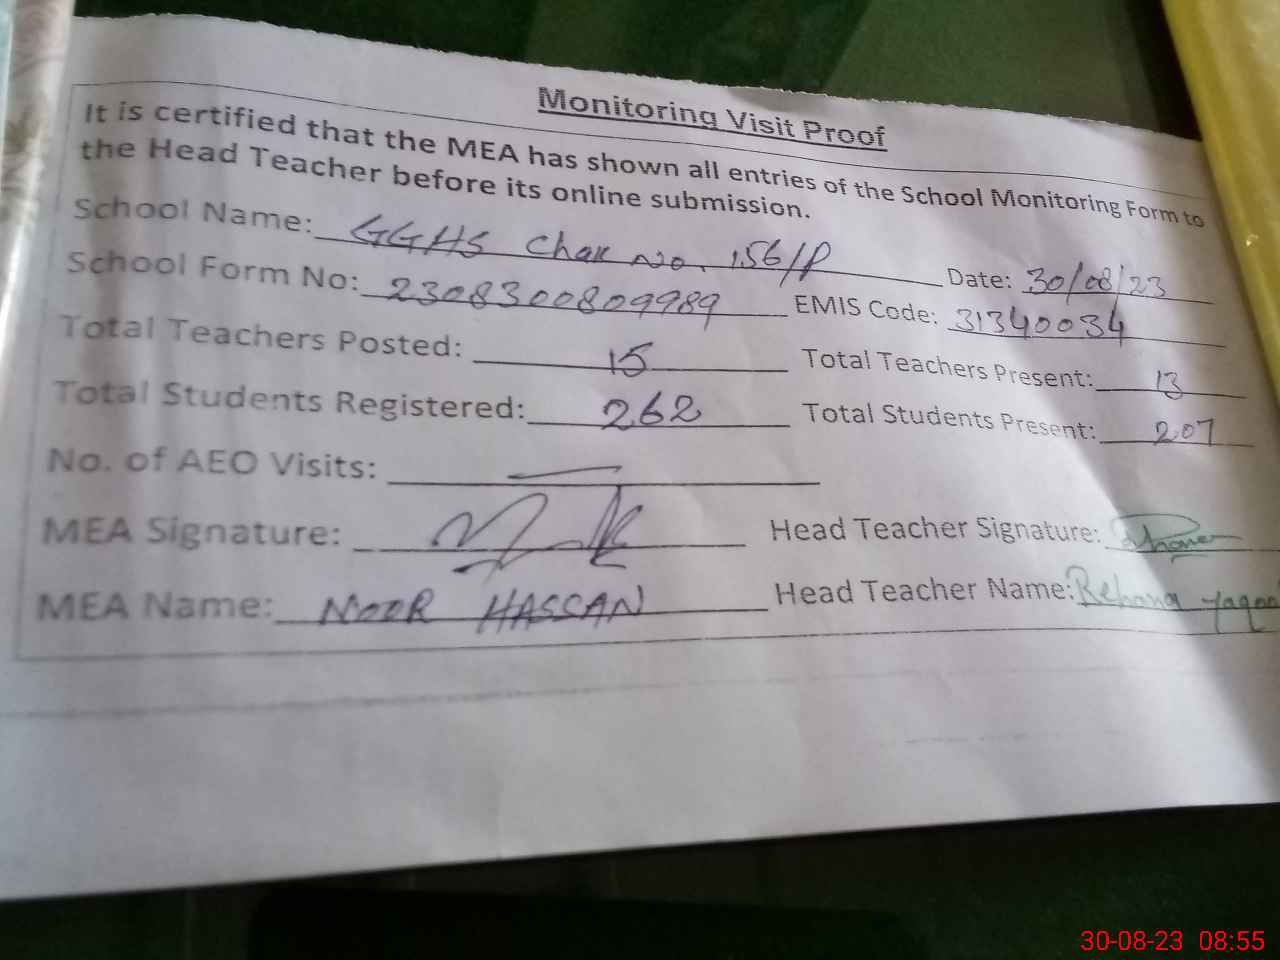 Monitoring Visit Proof
It is certified that the MEA has shown all entries of the School Monitoring Form to
the Head Teacher before its online submission.
School Name: GGHS Chak No. 156/P Date: 30/08/23
School Form No: 2308300809989 EMIS Code: 31340034
Total Teachers Posted: 15 Total Teachers Present: 13
Total Students Registered: 262 Total Students Present: 207
No. of AEO Visits: —
MEA Signature: Head Teacher Signature:
MEA Name: NOOR HASSAN Head Teacher Name: Rehana
30-08-23 08:55